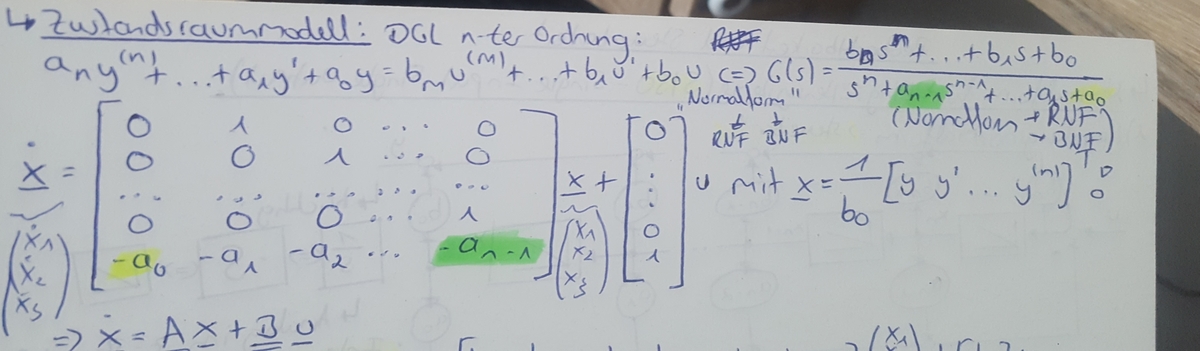 ↳ Zustandsraummodell: DGL n-ter Ordnung:
aₙy⁽ⁿ⁾+...+a₁y'+a₀y = bₘu⁽ᵐ⁾+...+b₁u'+b₀u <=> G(s) = (bₙsⁿ+...+b₁s+b₀)/(sⁿ+aₙ₋₁sⁿ⁻¹+...+a₁s+a₀)
"Normalform" (Normalform → RNF
↓ ↓ → BNF)
RNF BNF
ẋ = [0 1 0 ... 0
0 0 1 ... 0
... ... ... ... ...
0 0 0 ... 1
-a₀ -a₁ -a₂ ... -aₙ₋₁] x + [0
:
:
0
1] u mit x = 1/b₀ [y y' ... y⁽ⁿ⁾]ᵀ
(ẋ₁ ẋ₂ ẋ₃) (x₁ x₂ x₃)
=> ẋ = A x + B u